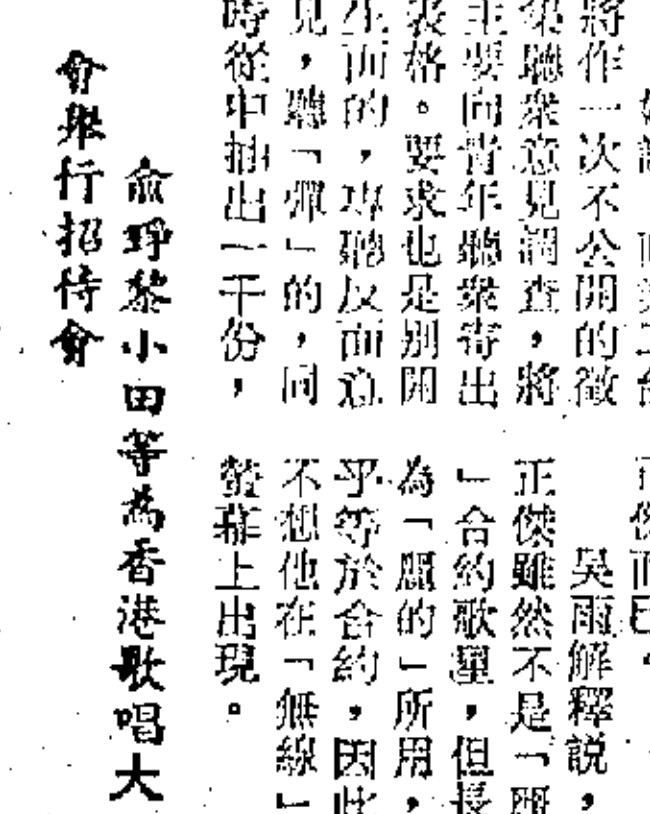 將作一次不公開的徵
集聽衆意見調查，將
主要向青年聽衆寄出
表格。要求也是別開
生面的，專聽反面意
見，聽「彈」的，同
時從中抽出一千份，
吳雨解釋説，
正傑雖然不是「麗
」合約歌星，但長
為「麗的」所用，
乎等於合約，因此
不想他在「無線」
螢幕上出現。
俞琤黎小田等為香港歌唱大
會舉行招待會